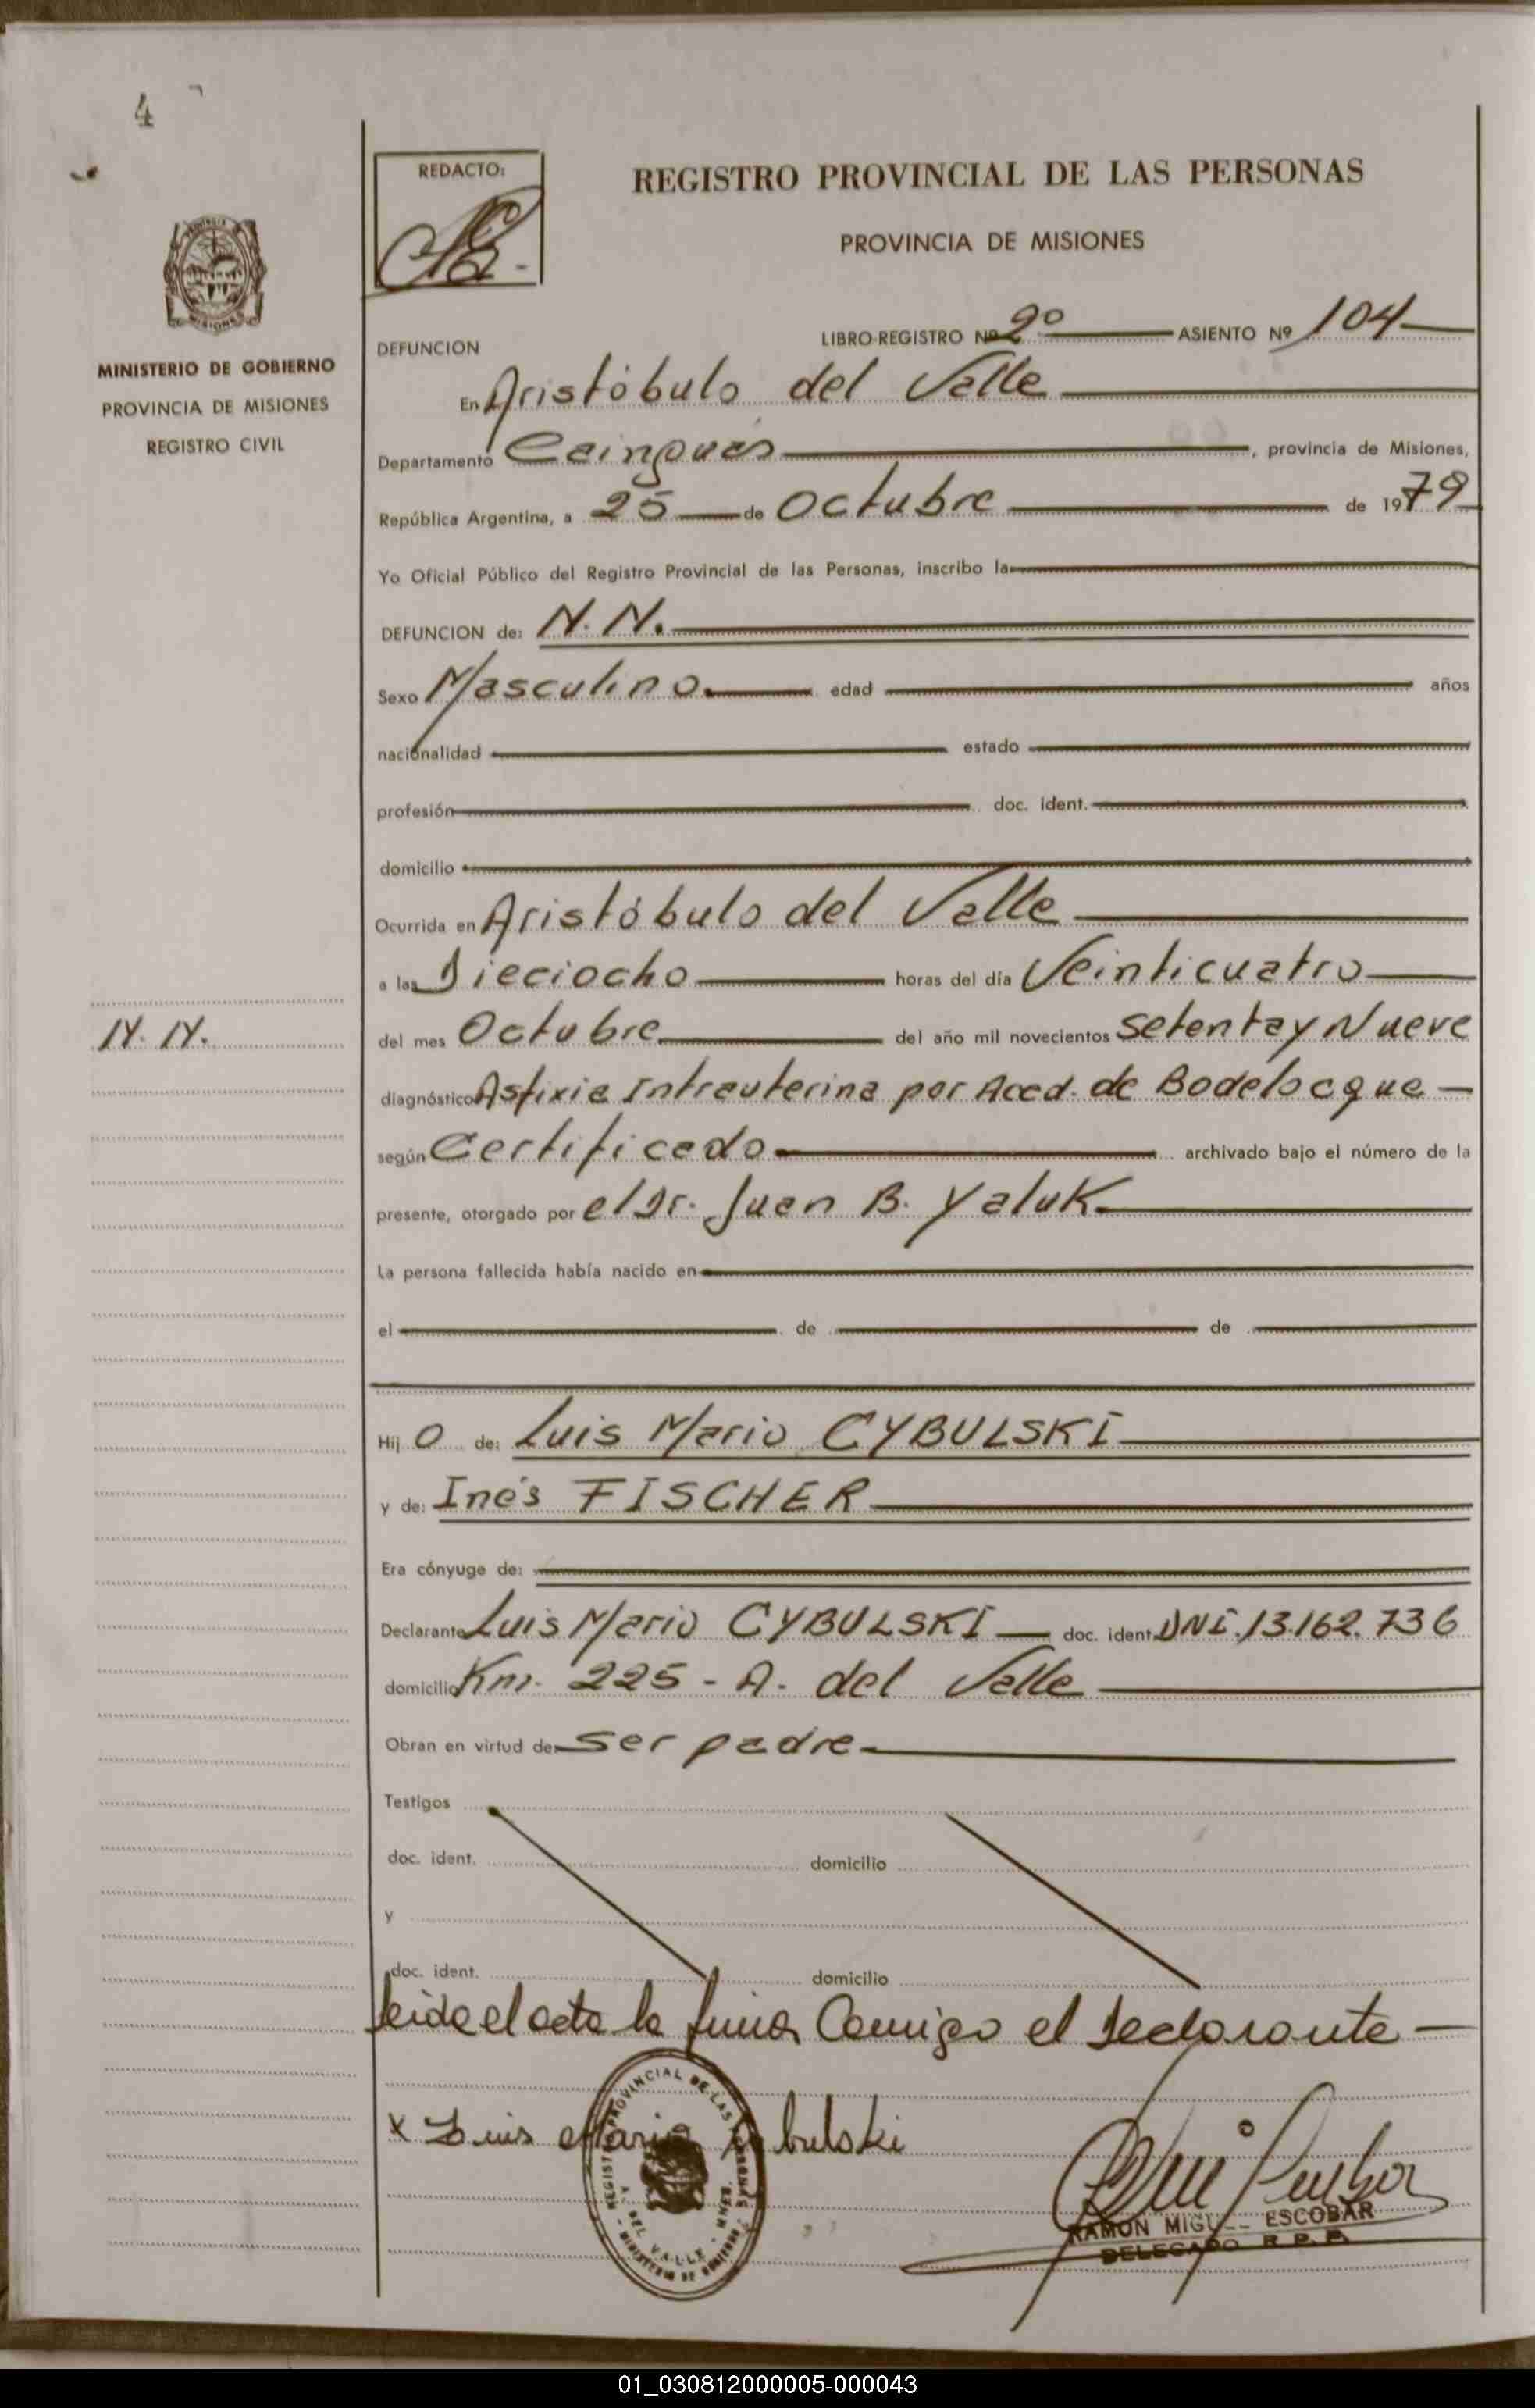 4
REDACTO:
REGISTRO PROVINCIAL DE LAS PERSONAS
PROVINCIA DE MISIONES
MINISTERIO DE GOBIERNO
PROVINCIA DE MISIONES
REGISTRO CIVIL
LIBRO-REGISTRO Nº 2º ASIENTO Nº 104
DEFUNCION
En Aristóbulo del Valle
Departamento Cainguás, provincia de Misiones,
República Argentina, a 25 de Octubre de 1979
Yo Oficial Público del Registro Provincial de las Personas, inscribo la
DEFUNCION de: N. N.
Sexo Masculino. edad años
nacionalidad estado
profesión doc. ident.
domicilio
Ocurrida en Aristóbulo del Valle
a las Dieciocho horas del día Veinticuatro
del mes Octubre del año mil novecientos setenta y Nueve
N. N.
diagnóstico Asfixia Intrauterina por Acod. de Bodelocque
según Certificado archivado bajo el número de la
presente, otorgado por el Dr. Juan B. Yaluk
La persona fallecida había nacido en
el de de
Hij o de: Luis Mario CYBULSKI
y de: Inés FISCHER
Era cónyuge de:
Declarante Luis Mario CYBULSKI doc. ident. DNI. 13.162.736
domicilio Km. 225 - A. del Valle
Obran en virtud de ser padre
Testigos
doc. ident. domicilio
y
doc. ident. domicilio
Leida el acta la firma Conmigo el declarante
x Luis Mario Cybulski
RAMON MIGUEL ESCOBAR
DELEGADO R. P. P.
01_030812000005-000043